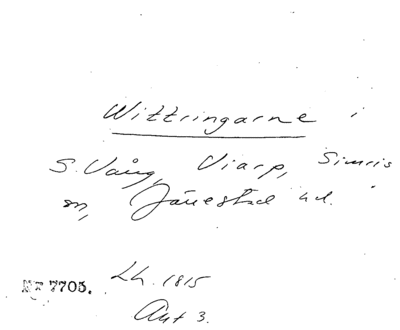 Wittringarne i
S. Vång, Viarp, Simris
sn, Järrestad hd.
Lh. 1815
Akt 3.
7705.